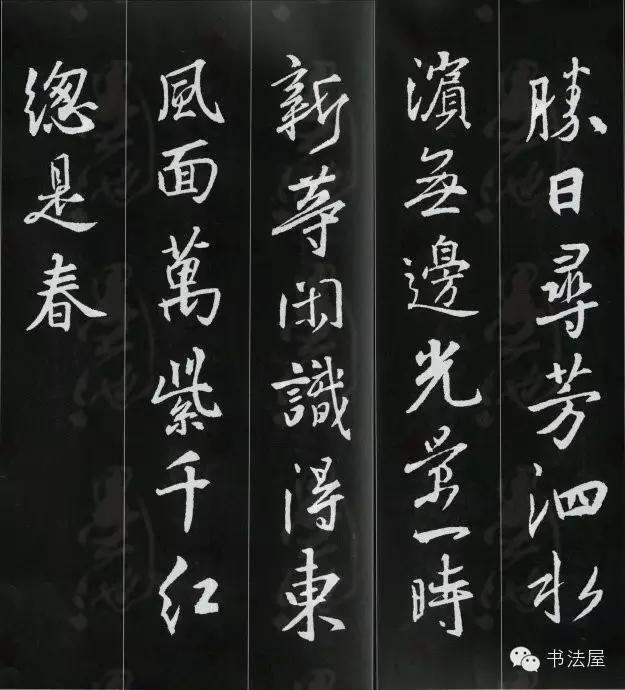 勝日尋芳泗水
濱無邊光景一時
新等閑識得東
風面萬紫千紅
總是春
书法屋